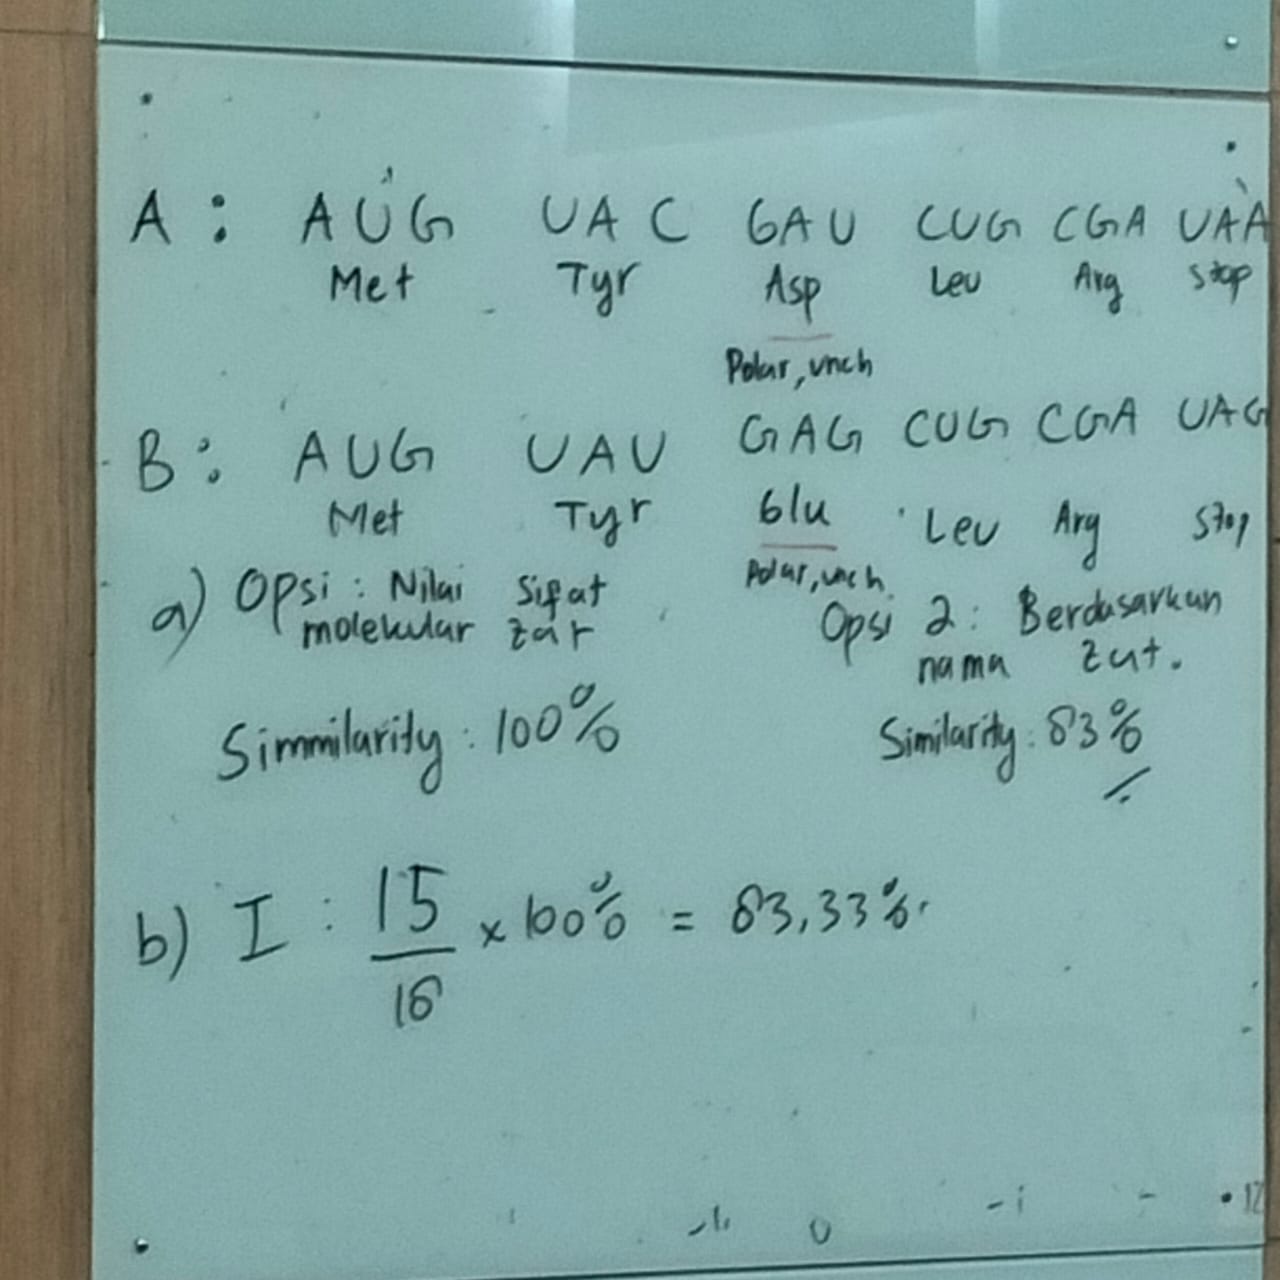 A : AUG UAC GAU CUG CGA UAA
Met Tyr Asp Leu Arg Stop
Polar, unch
B : AUG UAU GAG CUG CGA UAG
Met Tyr Glu Leu Arg Stop
Polar, unch.
a) Opsi : Nilai Sifat
molekular zat
Simmilarity : 100%
Opsi 2 : Berdasarkan
nama zat.
Similarity : 83%
b) I : 15/18 x 100% = 83,33%.